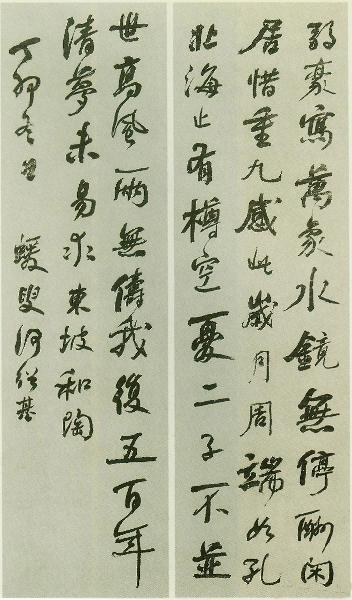 弱豪寫萬象水鏡無停酬閑
居惜重九感此歲月周端如孔
北海止有樽空憂二子不並
世高風兩無儔我後五百年
清夢未易求東坡和陶
丁卯冬日 蝯叟何紹基